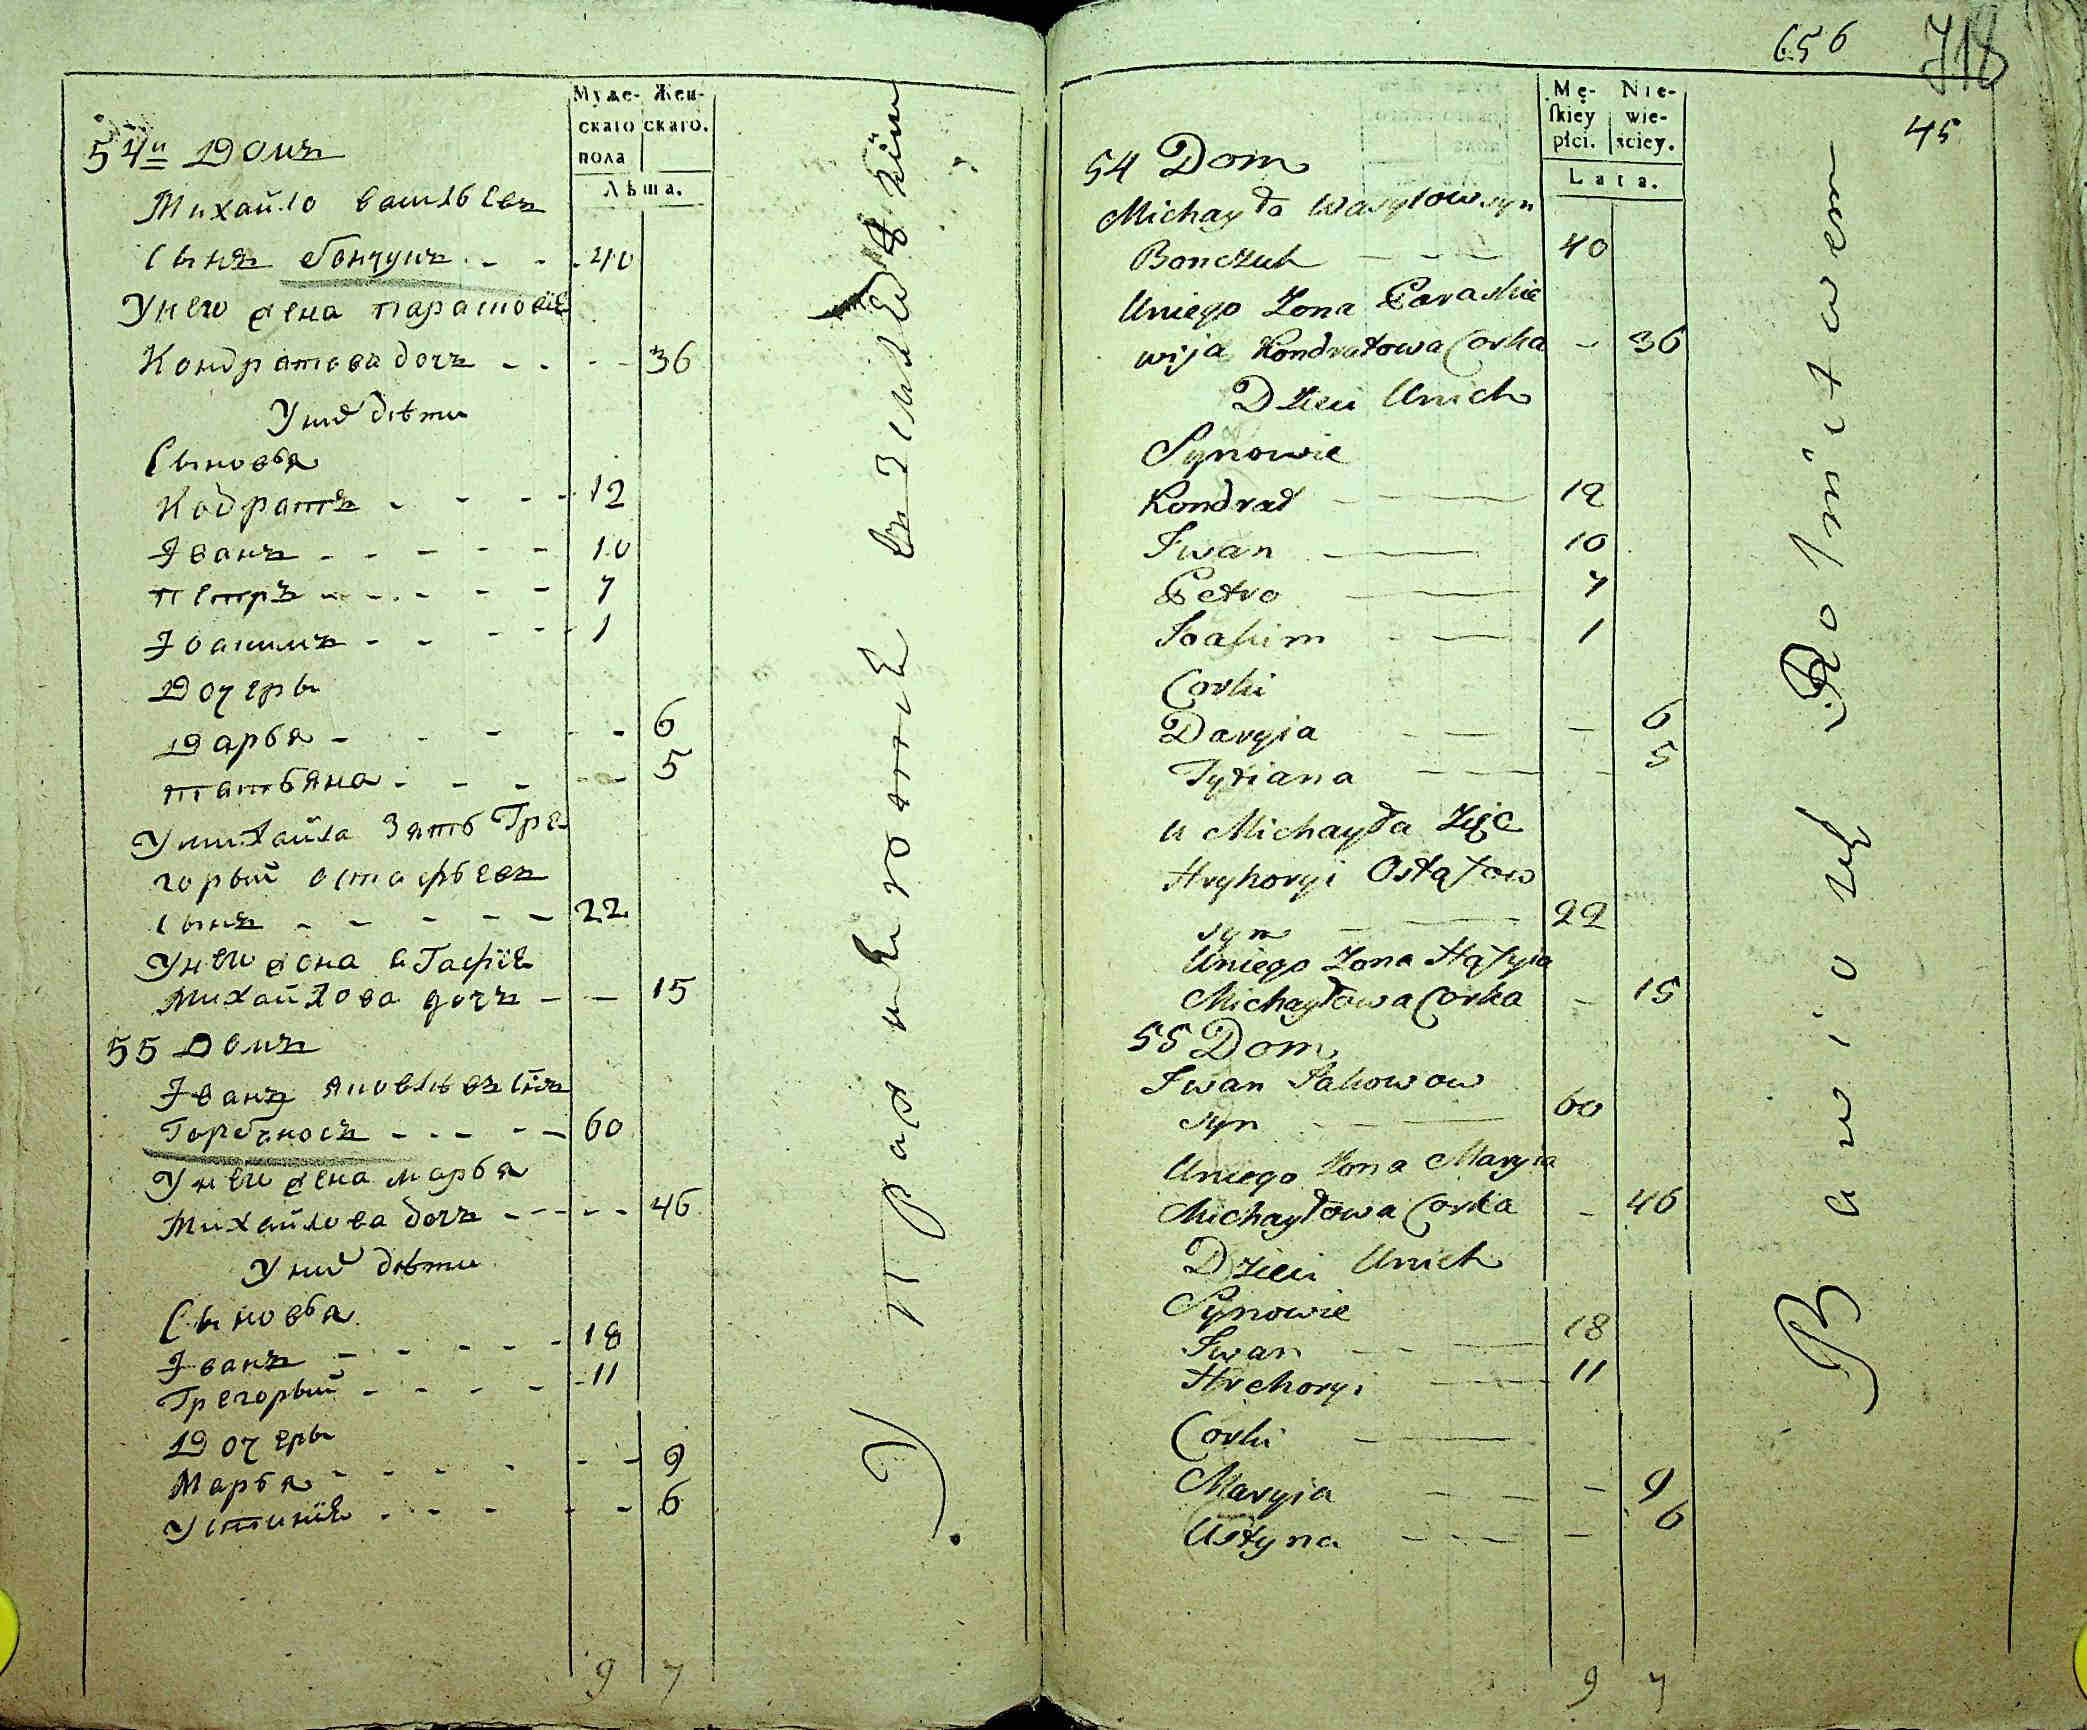 Муже- Жен-
скаго скаго.
пола
Лѣта.
54й Домъ
Михайло Васильевъ
сынъ Бончукъ - - - 40
У него жена Параскевіѣ
Кондратова дочь - - - - 36
У них дѣти
Сыновья
Кодратъ - - - - 12
Иванъ - - - - - 10
Петръ - - - - - 7
Иоакимъ - - - - 1
Дочеры
Дарья - - - - - 6
Татьяна - - - - - 5
У Михайла зять Гре
горый Остафьевъ
сынъ - - - - - 22
У него жена Агафіѣ
Михайлова дочь - - 15
55 Домъ
Иванъ Яковлевъ снъ
Горбоносъ - - - - - 60
У него жена Марья
Михайлова дочь - - - - - 46
У них дѣти
Сыновья
Иванъ - - - - - 18
Грегорый - - - - - 11
Дочеры
Марья - - - - - - 9
Устиніѣ - - - - - - 6
9 7
656
718
45
Mę- Nie-
skiey wie-
płci. sciey.
Lata.
54 Dom
Michayło Wasylow syn
Bonczuk - - - 40
Uniego Zona Paraskie
wija Kondratowa Corka - 36
Dzieci Unich
Synowie
Kondrat - - - 12
Iwan - - - 10
Petro - - - 7
Ioakim - - - 1
Corki
Daryia - - - 6
Tytiana - - - - 5
u Michayła Zięc
Hryhoryi Ostafow
syn - - - 22
Uniego Zona Hafyia
Michayłowa Corka - 15
55 Dom
Iwan Iakowow
syn - - - 60
Uniego Zona Maryia
Michayłowa Corka - 46
Dzieci Unich
Synowie
Iwan - - - 18
Hrehoryi - - 11
Corki - - -
Maryia - - - - 9
Ustyna - - - - 6
9 7